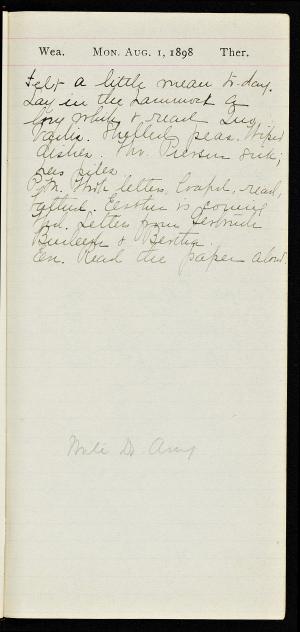 Wea. Mon. Aug. 1, 1898 Ther.
Felt a little mean to-day.
Lay in the hammock a
long while & read Quo
Vadis. Shelled peas. Wiped
dishes. Thr. Pierson sick;
has piles.
P.M. Wrote letters, read,
talked. is coming
Wed. Letters from Gertrude
Burleigh & Bertha.
Ev. Read the paper aloud.
Write Dr. Amy